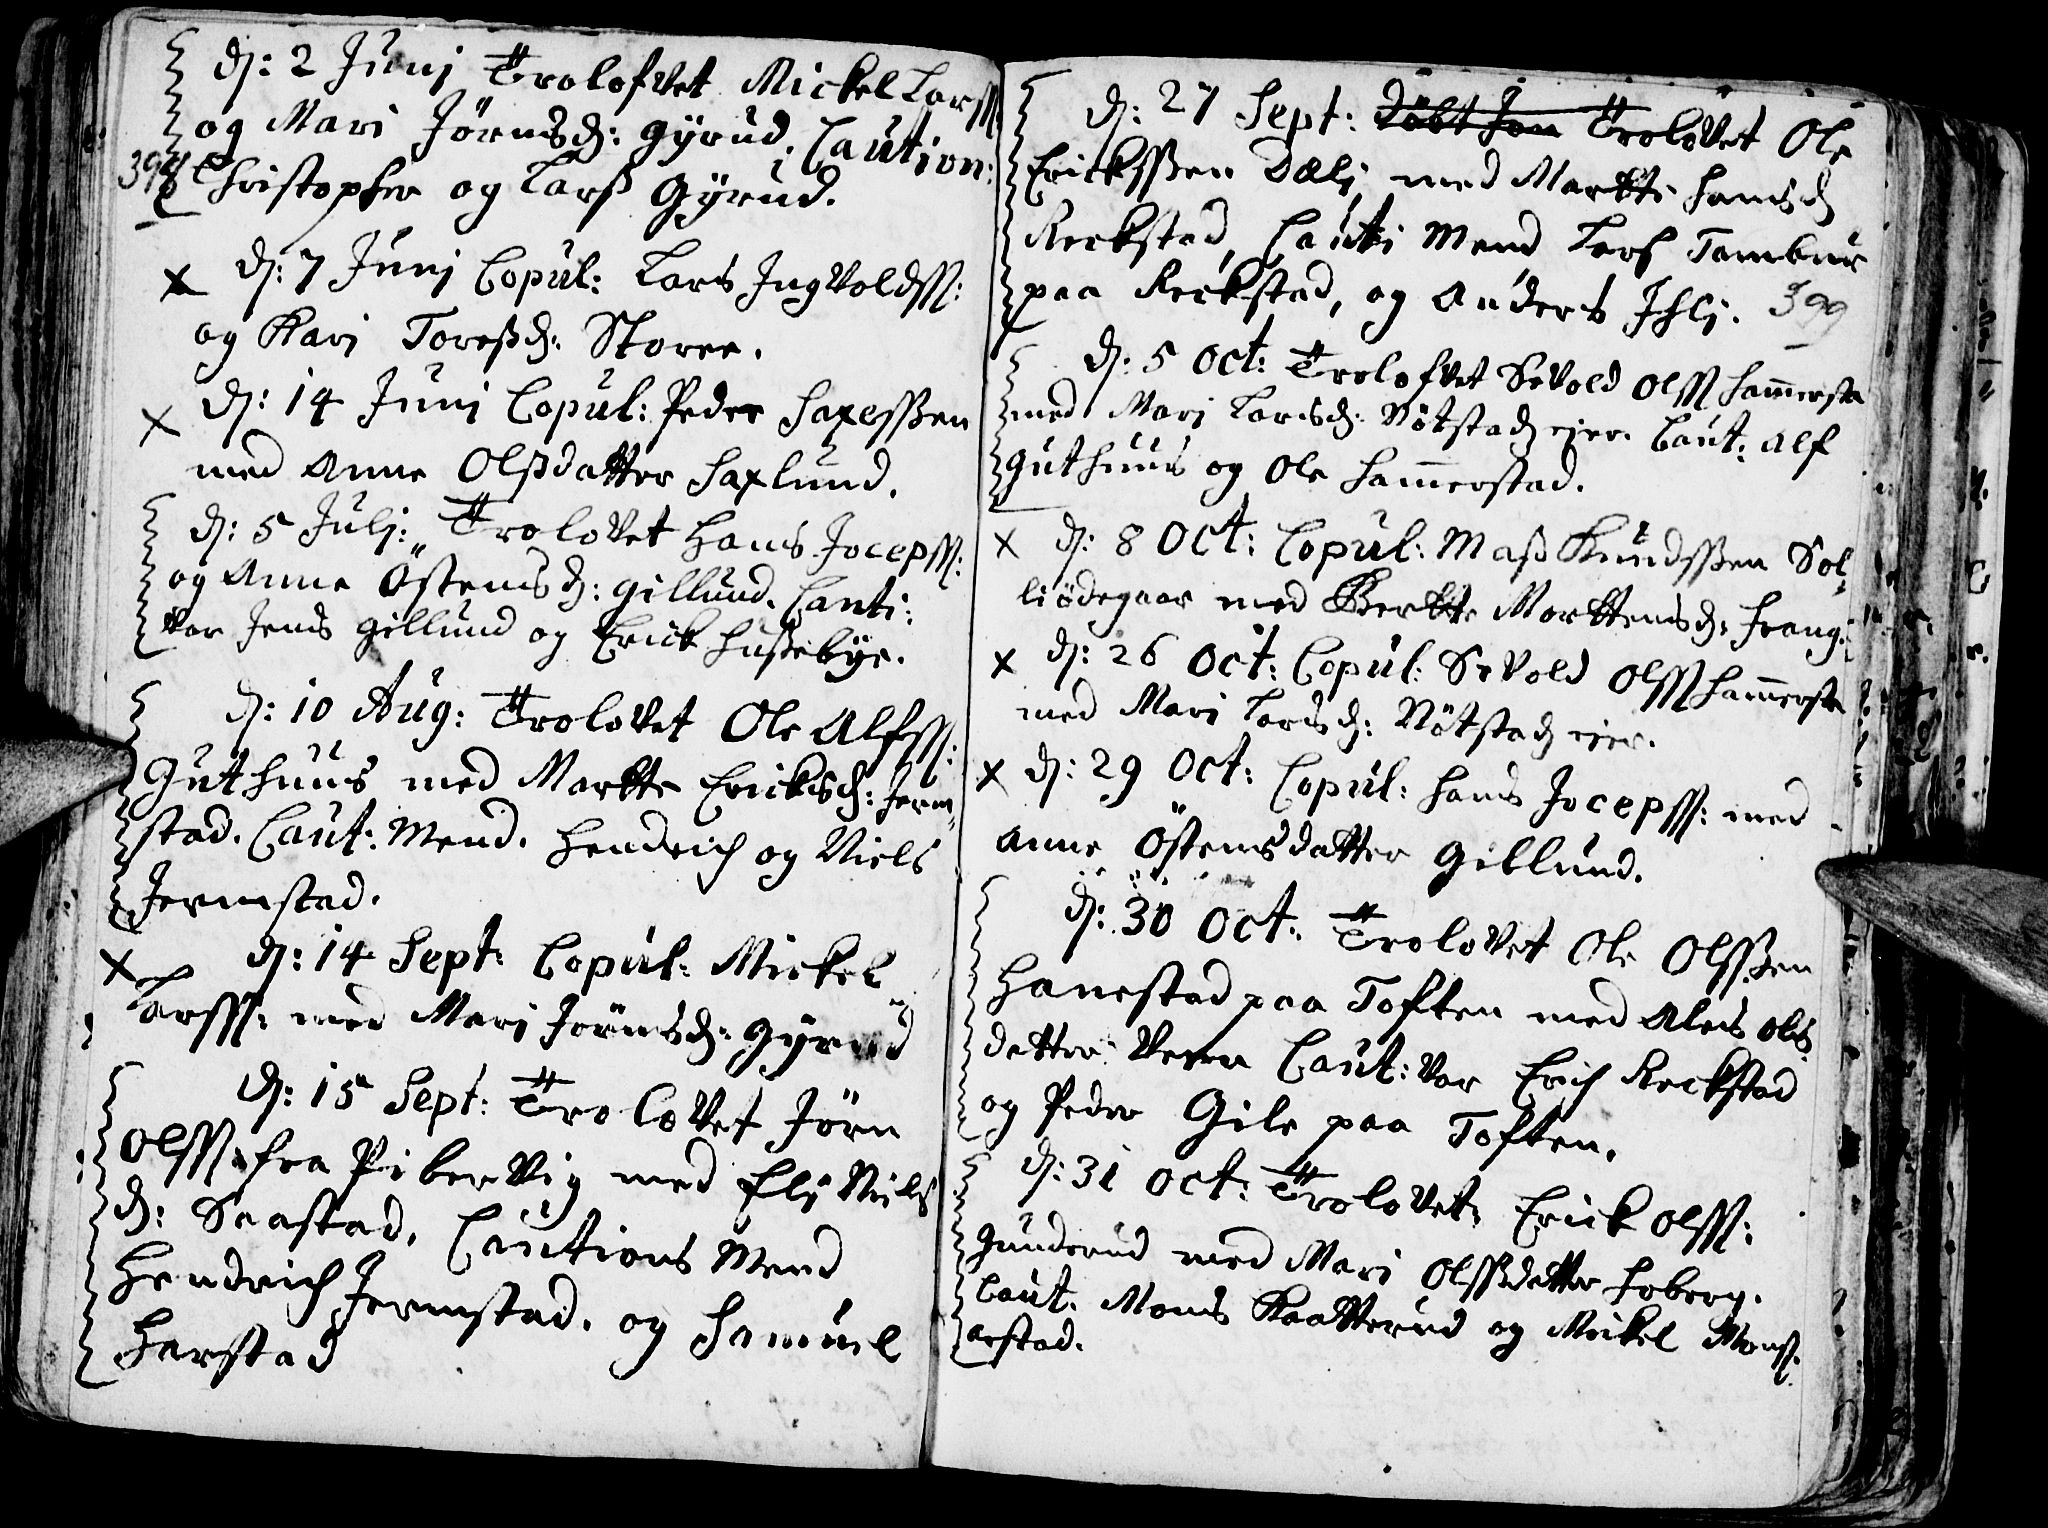 d: 2 Junj Trolofvet Mickel Larss:
og Mari Jörnsd: Gyrud. Caution:
398
Christopher og Larss Gyrud.
x d: 7 Junj Copul: Lars Ingvoldss:
og Kari Toresd: Storre.
x d: 14 Juni Copul: Peder Saxessen
med Anne Olssdatter Saxlund.
d: 5 Julj: Trolovet Hans Jocepss:
og Anne Östensd: Gillund. Cauti:
var Jens Gillund og Erick Hussebye.
d: 10 Aug: Trolovet Ole Alfss:
Guthuus med Martte Ericksd: Jerm
stad. Caut: Mend. Hendrich og Niels
Jermstad.
x d: 14 Sept: Copul: Mickel
Larss: med Mari Jörnsd: Gyrud
d: 15 Sept: Trolovet Jörn
Olss: fra Pibervig med Elj Niels
d: Saastad. Cautions Mend
Hendrich Jermstad. og Samuel
Harstad
d: 27 Sept: Döbt Jon Trolovet Ole
Erickssen Dælj med Martte Hansd
Reckstad, Cauti Mend Lars Tambur
paa Reckstad, og Anders Ihlj. 399
d: 5 Oct: Trolofvet Sevold Olss Hammersta
med Mari Larsd: Nötstad eier. Caut: Alf
Guthuus og Ole Hammerstad.
x d: 8 Oct: Copul: Mass Knudssen Sol-
liödegaar med Bertte Morttensd: Hrang:
x d: 26 Oct: Copul: Sevold Olss Hammersta
med Mari Larsd: Nötstad eier.
x d: 29 Oct: Copul: Hans Jocepss: med
Anne Östensdatter Gillund.
d: 30 Oct: Trolovet Ole Olssen
Hanestad paa Toften med Ales Ols
datter Caut: var Erich Reckstad
og Peder Gile paa Toften.
d: 31 Oct: Trolovet Erick Olss:
Gunderud med Mari Olssdatter Hoberg.
Caut. Mons Kaatterud og Mickel Monss.
arstad.